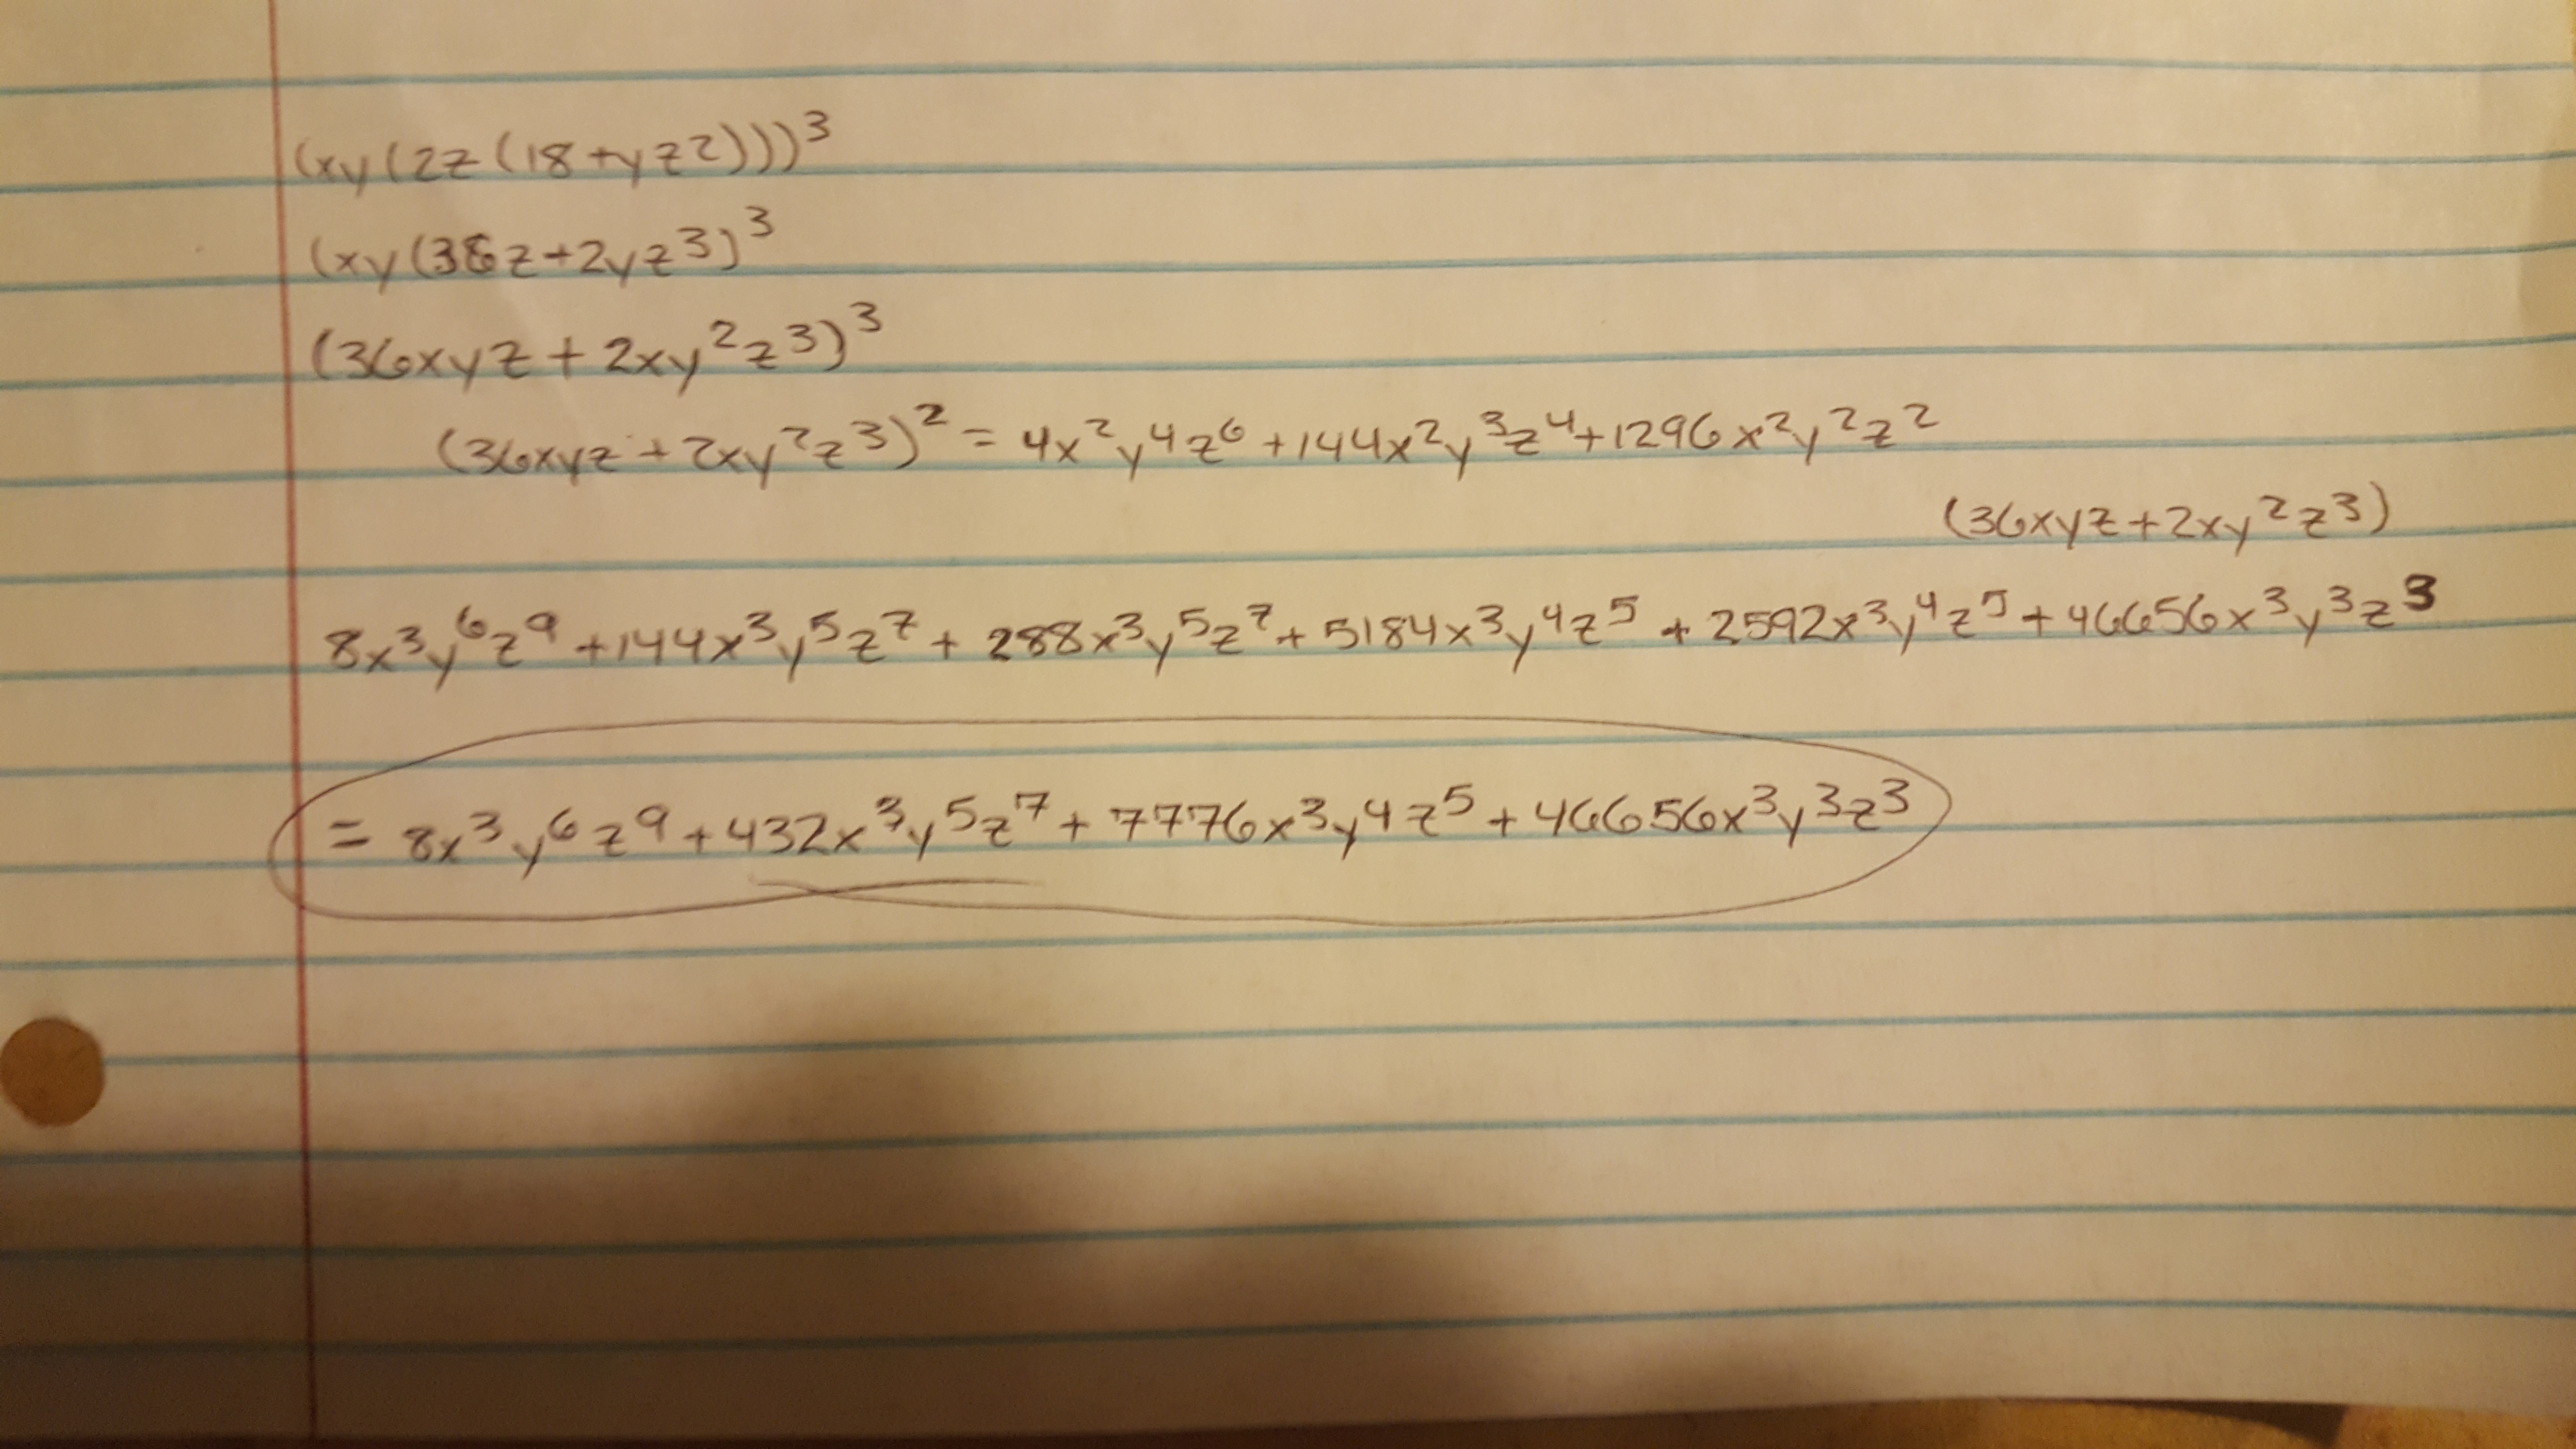 (xy(2z(18+yz²)))³
(xy(36z+2yz³)³
(36xyz+2xy²z³)³
(36xyz+2xy²z³)²=4x²y⁴z⁶+144x²y³z⁴+1296x²y²z²
(36xyz+2xy²z³)
8x³y⁶z⁹+144x³y⁵z⁷+288x³y⁵z⁷+5184x³y⁴z⁵+2592x³y⁴z⁵+46656x³y³z³
=8x³y⁶z⁹+432x³y⁵z⁷+7776x³y⁴z⁵+46656x³y³z³